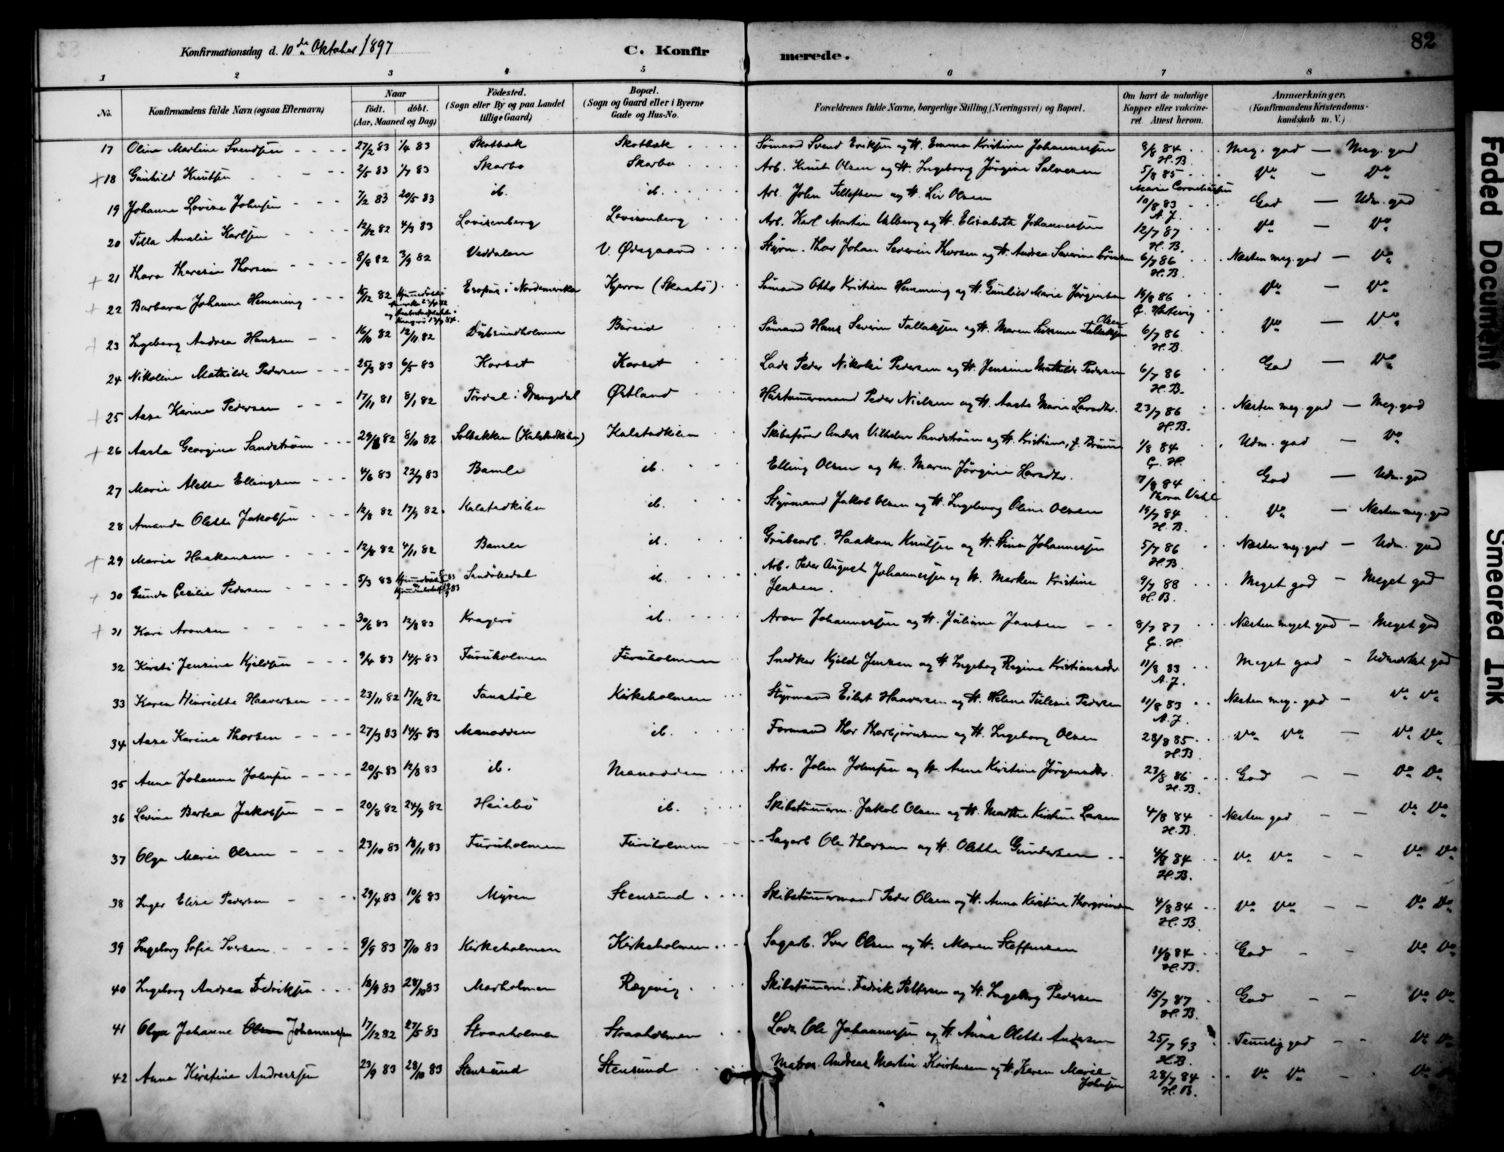 Konfirmationsdag d. 10de Oktober 1897
C. Konfirmerede.
82
1 2 3 4 5 6 7 8
No. Konfirmandens fulde Navn (ogsaa Efternavn) Naar født. døbt. (Aar, Maaned og Dag) Fødested. (Sogn eller By og paa Landet tillige Gaard) Bopæl. (Sogn og Gaard eller i Byerne Gade og Hus-No. Forældrenes fulde Navne, borgerlige Stilling (Næringsvei) og Bopæl. Om havt de naturlige Kopper eller vakcineret. Attest herom. Anmerkninger. (Konfirmandens Kristendomskundskab m. V.)
17 Oline Martine Svendsen 27/2 83 1/4 83 Skotbak Skotbak Sømand Svend Eriksen og H. Emma Kristine Johannessen 8/8 84 H.B. Meg. god — Meg. god
18 Gunhild Knutsen 83 83 Skarbo Skarbo Arb. Knut Olsen og H. Ingeborg Jørgine Salvesen 5/8 85 Do — Do
19 Johanne Lovise Johnsen 7/2 83 20/5 83 ib. ib. Arb. John Tellefsen og H. Liv Olsen 10/8 83 A.J. God — Udm. god
20 Tilla Amalie Karlsen 12/12 82 4/3 83 Lovisenberg Lovisenberg Arb. Karl Martin Ulberg og H. Elisabeth Johannessen 12/7 87 H.B. Do — Do
21 Thora Theresia Thorsen 8/8 82 3/9 82 Vaddalen V. Ødegaard Styrm. Thor Johan Severin Thorsen og H. Andrea Severine 6/7 86 H.B. Næsten meg. god — Do
22 Barbara Johanne Hemming 82 i Nordamerika Kjørra (Skaatø) Sømand Otto Kristian Hemming og H. Gunhild Marie Jørgensen 86 Do — Do
23 Ingeborg Andrea Hansen 16/10 82 12/11 82 Dybsundholmen Buseid Sømand Hans Severin Tallaksen og H. Maren Susanne Olsen 6/7 86 H.B. Do — Do
24 Nikoline Mathilde Pedersen 25/3 83 6/5 83 Korset Korset Lods Peder Nikolai Pedersen og H. Jensine Mathilde Pedersen 6/7 86 H.B. God — Do
25 Aase Karine Pedersen 17/11 81 8/1 82 Tørdal i Drangedal Østland Husmand Peder Nielsen og H. Aaste Marie Larsdtr. 23/7 86 H.B. Næsten meg. god — Meg. god
26 Aasta Georgine Sandstrøm 82 82 Solbakken (Kalstadkilen) Kalstadkilen Skibsfører Anders Vilhelm Sandstrøm og H. Kristiane, f. Bruun 1/8 84 G.H. Udm. god — Do
27 Marie Alette Ellingsen 4/6 83 22/7 83 Bamle ib. Elling Olsen og H. Maren Jørgine Larsdtr. 84 God — Udm. god
28 Amanda Olette Jakobsen 82 17/9 82 Kalstadkilen ib. Styrmand Jakob Olsen og H. Ingeborg Oline Olsen 84 H.B. Do — Næsten meg. god
29 Marie Haakonsen 82 4/11 82 Bamle ib. Grubearb. Haakon Knutsen og H. Stina Johannessen 5/7 86 H.B. Næsten meg. god — Udm. god
30 Gunda Cecilie Pedersen 5/3 83 83 Sandøkedal ib. Arb. Peder August Johannessen og H. Marken Kristine Jensen. 9/7 88 H.B. Meget god — Meget god
31 Kari Aronsen 30/6 83 12/8 83 Kragerø ib. Aron Johannessen og H. Juliane Jansen 8/7 87 G.H. Næsten meget god — Meget god
32 Kirsti Jensine Kjeldsen 9/4 83 14/5 83 Furuholmen Furuholmen Snedker Kjeld Jensen og H. Ingeborg Regine Kristiansdtr 11/8 83 A.J. Meget god — Udmerket god
33 Karen Henriette Haaversen 23/11 82 17/12 82 Fanstøl Kirkeholmen Styrmand Eilert Haaversen og H. Helene Pedersen 11/8 83 A.J. Næsten meg. god — Do Do
34 Aase Karine Thorsen 27/3 83 14/5 83 Manodden ib. Formand Thor Thorbjørnsen og H. Ingeborg Olsen 28/8 85 H.B. Do Do — Do Do
35 Anne Johanne Johnsen 20/5 83 12/8 83 ib. Manodden Arb. John Johnsen og H. Anne Kirstine Jørgensdtr. 23/8 86 H.B. God — Do Do
36 Lovise Bertea Jakobsen 20/8 82 24/9 82 Heiebø ib. Skibstømerm. Jakob Olsen og H. Marthe Kirstine Larsen 4/8 84 H.B. Næsten god — Do Do
37 Olga Marie Olsen 23/10 83 18/11 83 Furuholmen Furuholmen Sagarb. Ole Thorsen og H. Olette Gundersen 4/8 84 H.B. Do Do — Do Do
38 Inger Elise Pedersen 29/4 83 10/6 83 Myren Stensund Skibstømmermand Peder Olsen og H. Anna Kirstine 4/8 84 H.B. Do Do — Do Do
39 Ingeborg Sofie Iversen 9/9 83 7/10 83 Kirkeholmen Kirkeholmen Sagarb. Iver Olsen og H. Maren Steffensen 14/8 84 H.B. God — Do Do
40 Ingeborg Andrea Fredriksen 18/9 83 28/10 83 Marholmen Røgevig Skibstømerm. Fredrik Pettersen og H. Ingeborg Pedersen 15/7 87 H.B. God — Do Do
41 Olga Johanne Johannessen 17/12 82 27/5 83 Straaholmen Straaholmen Lods Ole Johannessen og H. Anne Olette Andersen 25/7 93 H.B. Temelig god — Do Do
42 Anna Kirstine Andreassen 23/9 83 28/10 83 Stensund Stensund Matros Andreas Martin Kristensen og H. Karen Marie Johnsen 28/7 84 H.B. Do Do — Do Do
Faded Document
Smeared Ink